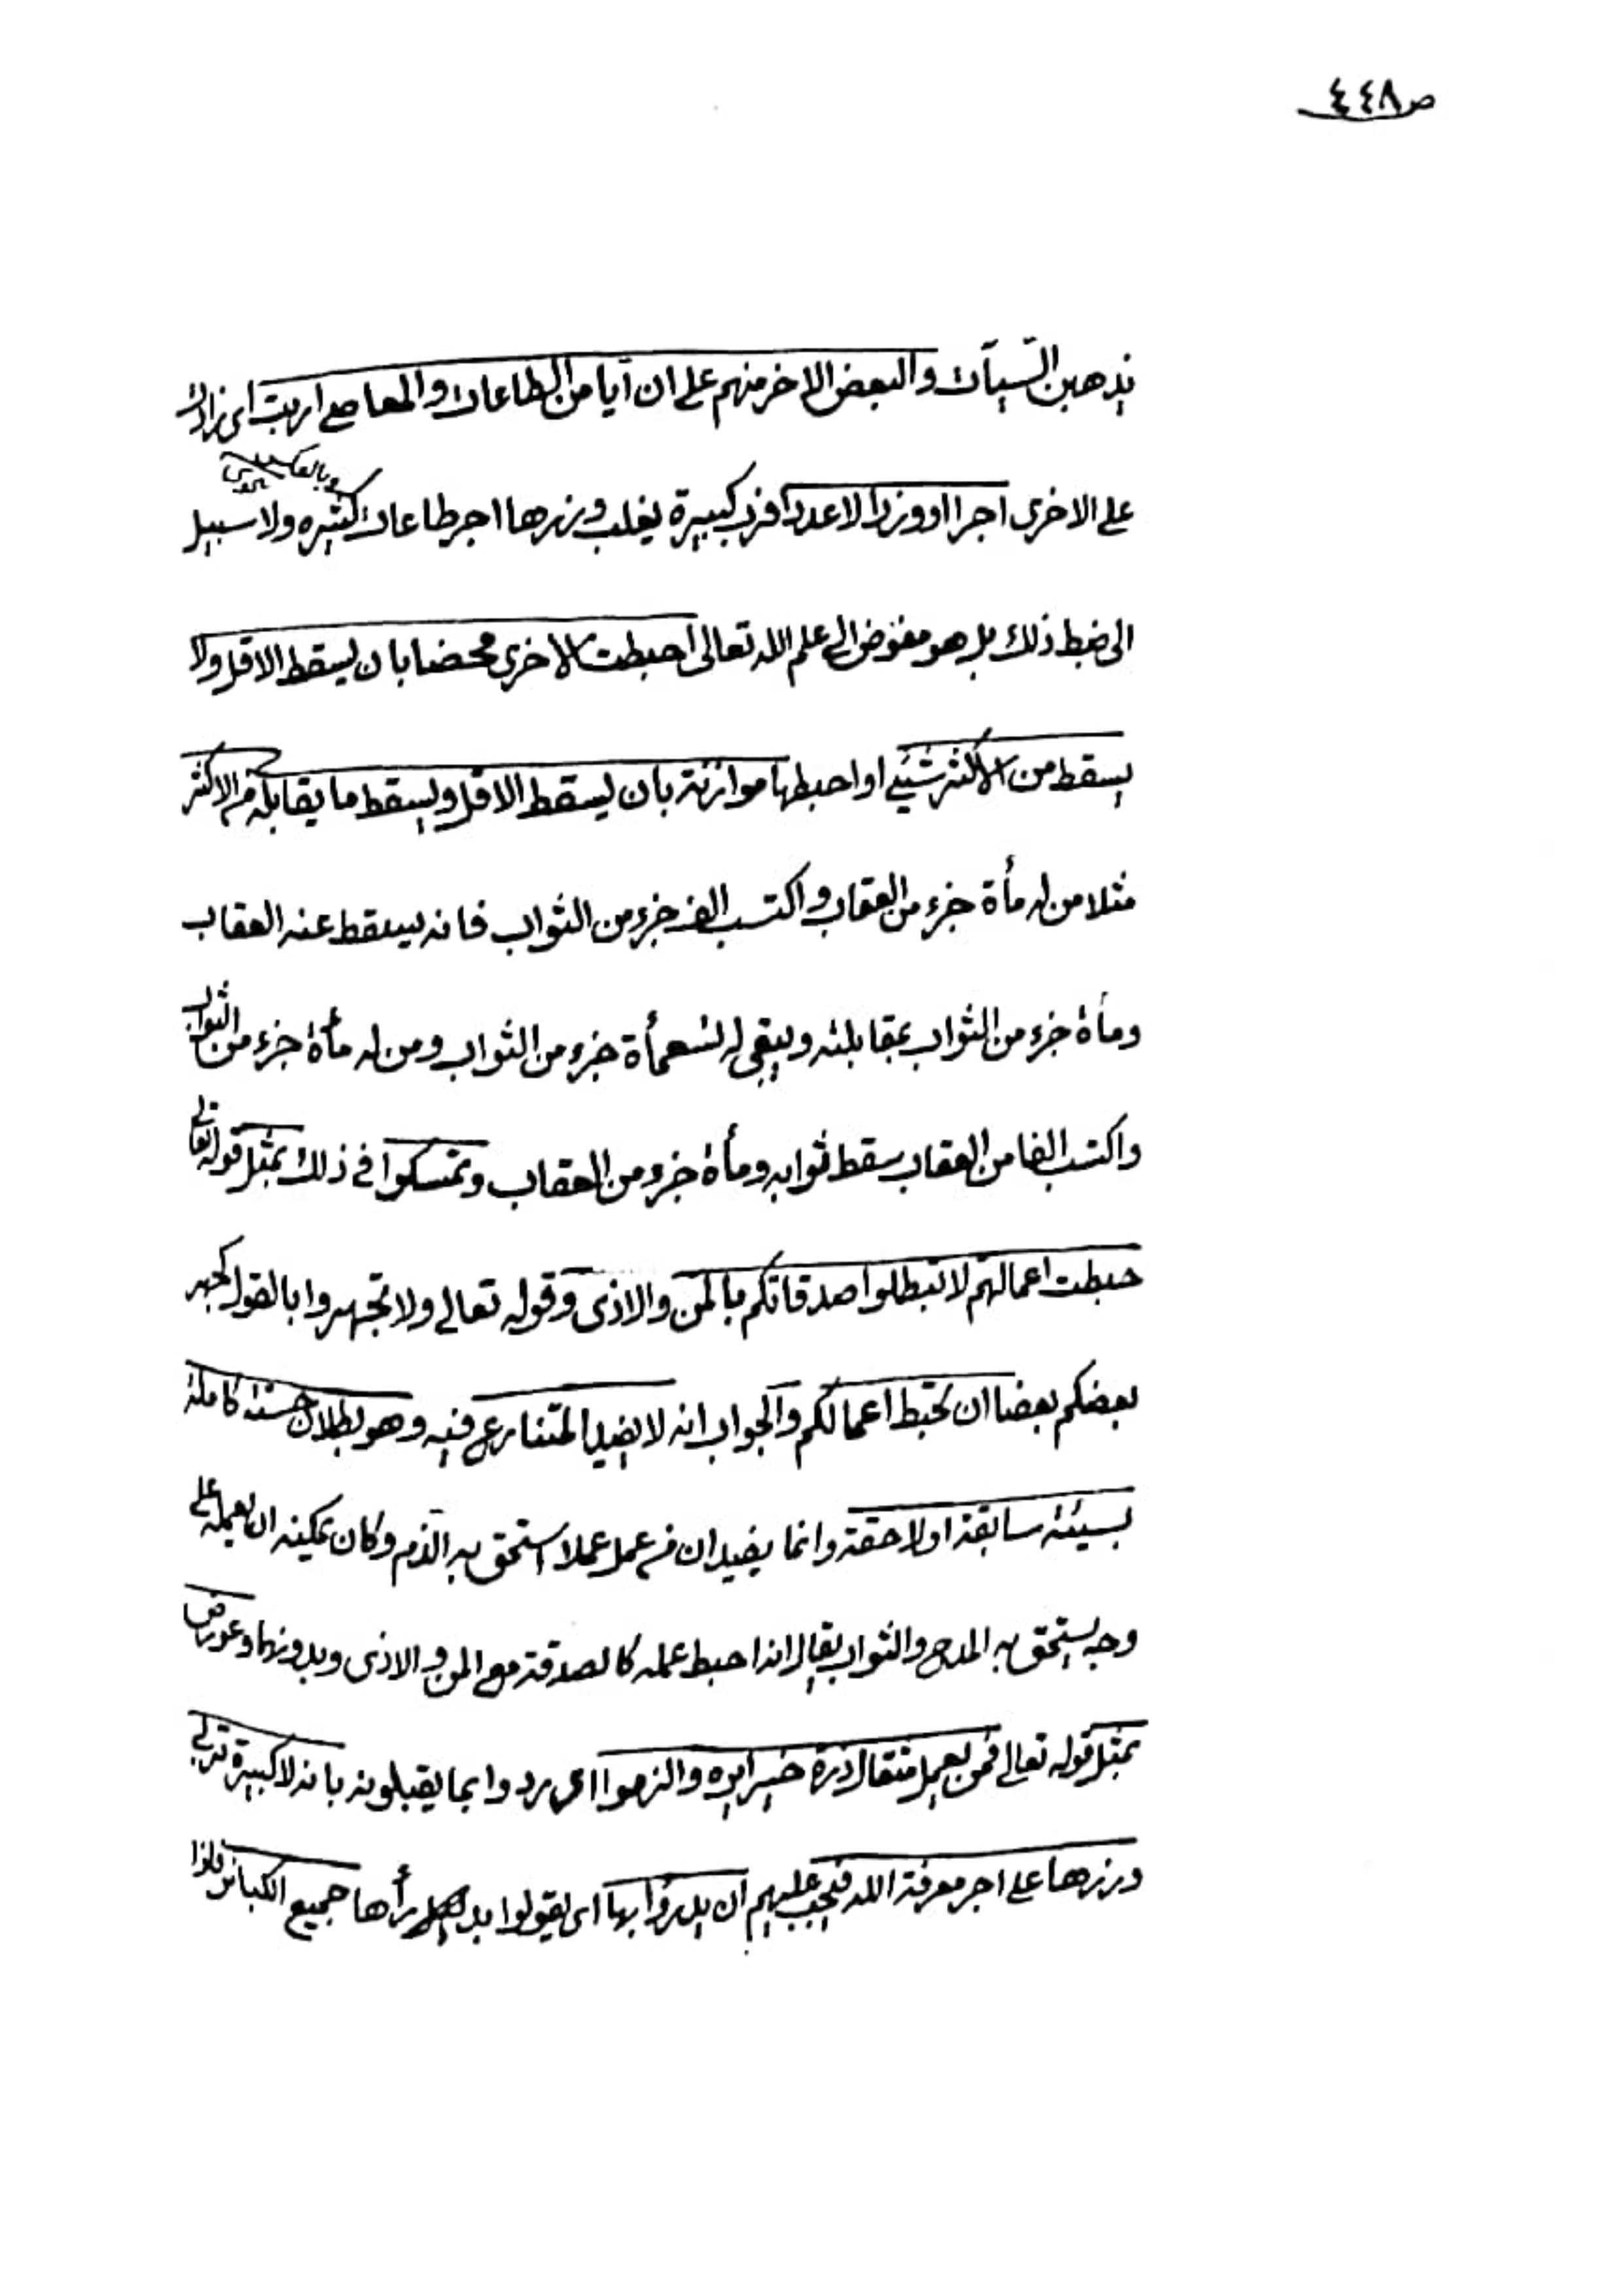 ص ٤٤٨
يذهبن السّيآت والبعض الاخر منهم على ان آيا من الطاعات والمعاصى اربت اى زادت
وبالعكس
على الاخرى اجرا او وزرا لا عددا فرب كبيرة يغلب وزرها اجر طاعات كثيره ولا سبيل
الى ضبط ذلك بل هو مفوّض الى علم الله تعالى احبطت الاخرى محضا بان يسقط الاقل ولا
يسقط من الاكثر شيئ او احبطها موازنة بان يسقط الاقل ويسقط ما يقابله من الاكثر
مثلا من له مأة جزء من العقاب واكتسب الف جزء من الثواب فانه يسقط عنه العقاب
ومأة جزء من الثواب بمقابلته ويبقى له تسعمأة جزء من الثواب ومن له مأة جزء من الثواب
واكتسب الفا من العقاب سقط ثوابه ومأة جزء من العقاب وتمسكوا فى ذلك بمثل قوله تعالى
حبطت اعمالهم لا تبطلوا صدقاتكم بالمن والاذى وقوله تعالى ولا تجهروا بالقول كجهر
بعضكم بعضا ان تحبط اعمالكم والجواب انه لا يفيد المتنازع فيه وهو بطلان حسنة كاملة
بسيئة سابقة او لاحقة وانما يفيد ان من عمل عملا استحق به الذم وكان يمكنه ان يعمله على
وجه يستحق به المدح والثواب يقال انه احبط عمله كالصدقة مع المن والاذى وبدونهما وعورض
بمثل قوله تعالى فمن يعمل مثقال ذرة خيرا يره والزموا اى ردوا بما يقبلونه بانه لا كبيرة تربى
وزرها على اجر معرفة الله فيجب عليهم ان يدرؤا بها اى يقولوا بدرأها جميع الكبائر فاذا